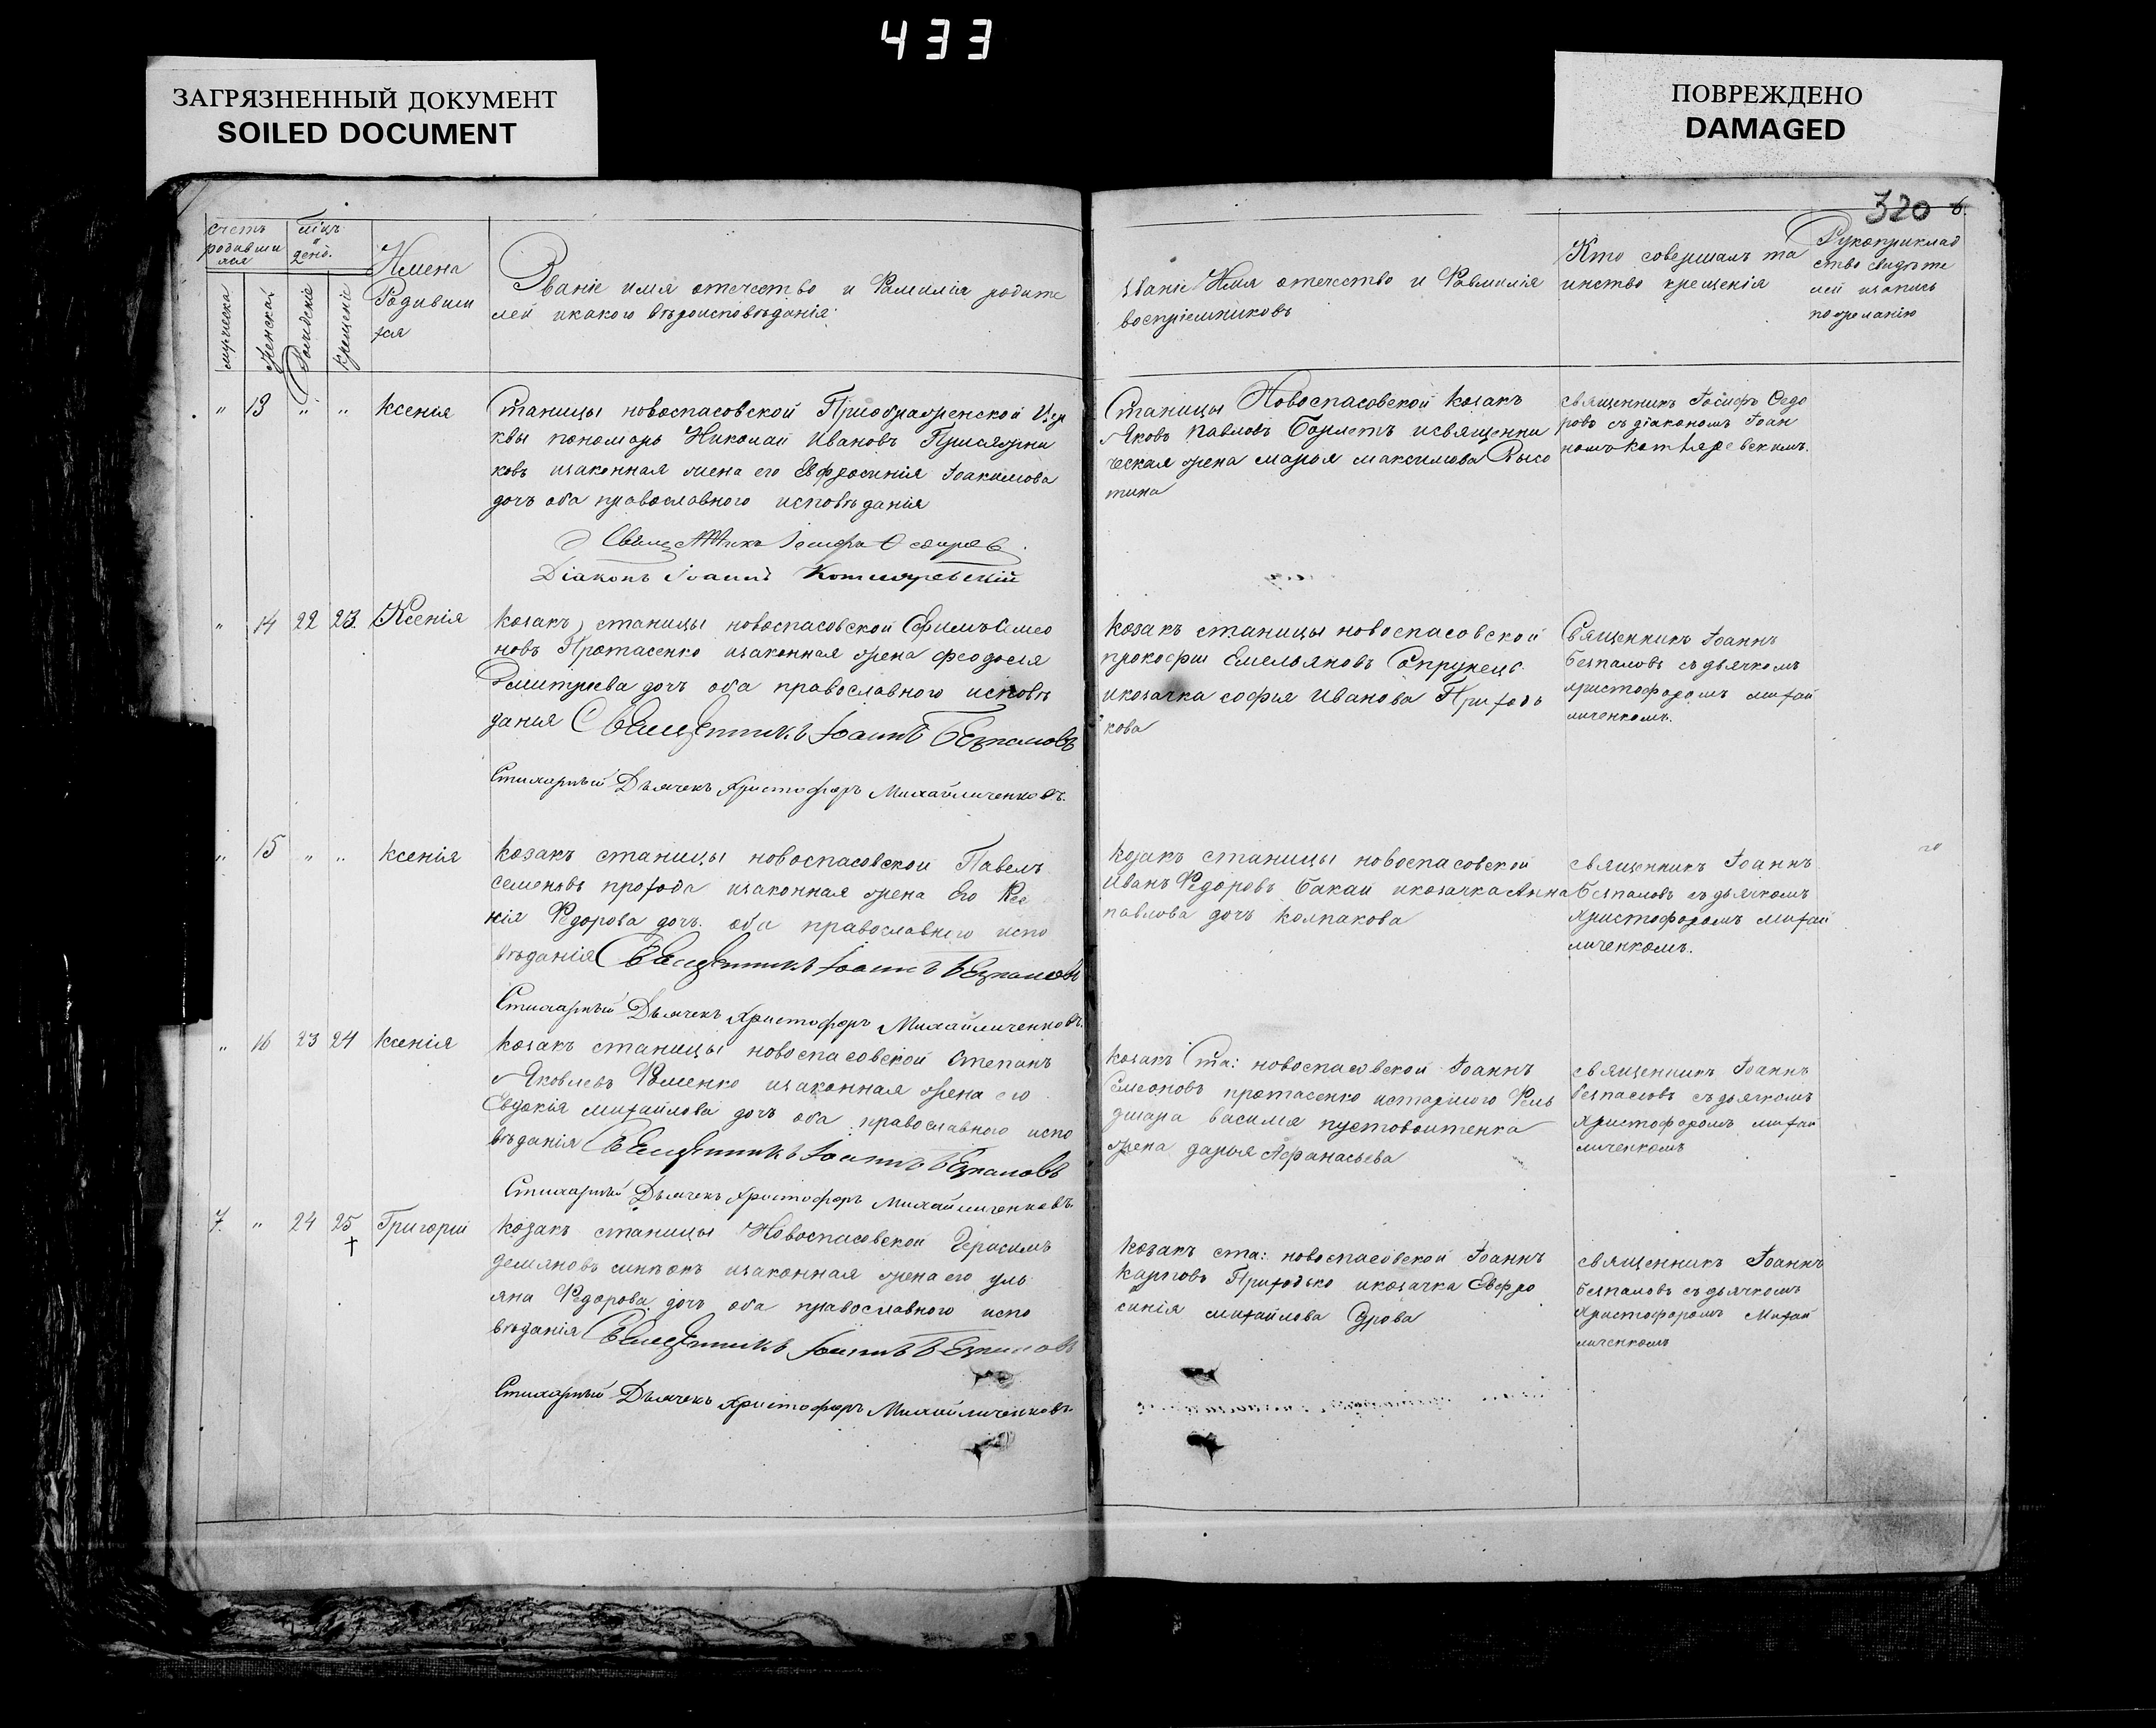 433
ЗАГРЯЗНЕННЫЙ ДОКУМЕНТ
SOILED DOCUMENT
ПОВРЕЖДЕНО
DAMAGED
320
счетъ
родивши
хся
мѣц
и
день.
мужеска
женска
Рожденіе
Крещеніе
Имена
Родивши
хся
Званіе имя отечество и Фамилія родите
лей икакого вѣроисповѣданія
Званіе Имя отечество и Фамилія
воспріемниковъ
Кто совершалъ та
инство крещенія
Рукоприклад
ство свидѣте
лей изапись
по желанію
" 13 " " Ксенія
Станицы новоспасовской Приображенской Цер
квы пономарь Николай Ивановъ Присяжни
ковъ изаконная жена его Евфросинія Іоакимова
дочь оба православного исповѣданія
Священникъ Іосифъ Ѳедоровъ
Діаконъ Іоаннъ Котляревскій
Станицы Новоспасовской Козакъ
Яковъ Павловъ исвященни
ческая жена марья максимова Высо
тина
священникъ Іосифъ Ѳедо
ровъ съ діакономъ Іоан
номъ Котляревскимъ.
" 14 22 23. Ксенія
Козакъ станицы новоспасовской Ефимъ Семео
новъ Протасенко изаконная жена феодосія
Дмитріева дочь оба православного исповѣ
данія Священникъ Іоаннъ Безпаловъ
Стихарный Дьячекъ Христофоръ Михайличенковъ.
Козакъ станицы новоспасовской
прокофии Емельяновъ Опрунецъ
икозачка софья Иванова Приходь
кова
Священникъ Іоаннъ
безпаловъ съ дьячкомъ
христофоромъ михай
личенкомъ.
" 15 " " Ксенія
Козакъ станицы новоспасовской Павелъ
семеновъ прохода изаконная жена Его Ксе
нія Федорова дочь. оба православного испо
вѣданія Священникъ Іоаннъ Безпаловъ
Стихарный Дьячекъ Христофоръ Михайличенковъ.
Козакъ станицы новоспасовской
Иванъ Федоровъ Бакай икозачка Анна
павлова дочь Колпакова
священникъ Іоаннъ
Безпаловъ съ дьячкомъ
христофоромъ михай
личенкомъ.
" 16 23 24 Ксенія
Козакъ станицы новоспасовской Степанъ
Яковлевъ Фоменко изаконная жена его
Евдокія михайлова дочь оба православного испо
вѣданія Священникъ Іоаннъ Безпаловъ
Стихарный Дьячекъ Христофоръ Михайличенковъ.
Козакъ Ста: новоспасовской Іоаннъ
Семеоновъ протасенко истаршого Фель
дшара василия пустовоитенка
жена дарья Афанасьева
священникъ Іоаннъ
безпаловъ съ дьячкомъ
христофоромъ михай
личенкомъ
7. " 24 25 Григорій
†
Козакъ станицы Новоспасовской Герасимъ
демяновъ изаконная жена его уль
яна Федорова дочь оба православного испо
вѣданія Священникъ Іоаннъ Безпаловъ
Стихарный Дьячекъ Христофоръ Михайличенковъ.
Козакъ ста: новоспасовской Іоаннъ
Карповъ Приходько икозачка Евфро
синія михайлова Сурова
священникъ Іоаннъ
безпаловъ съ дьячкомъ
Христофоромъ Михай
личенкомъ